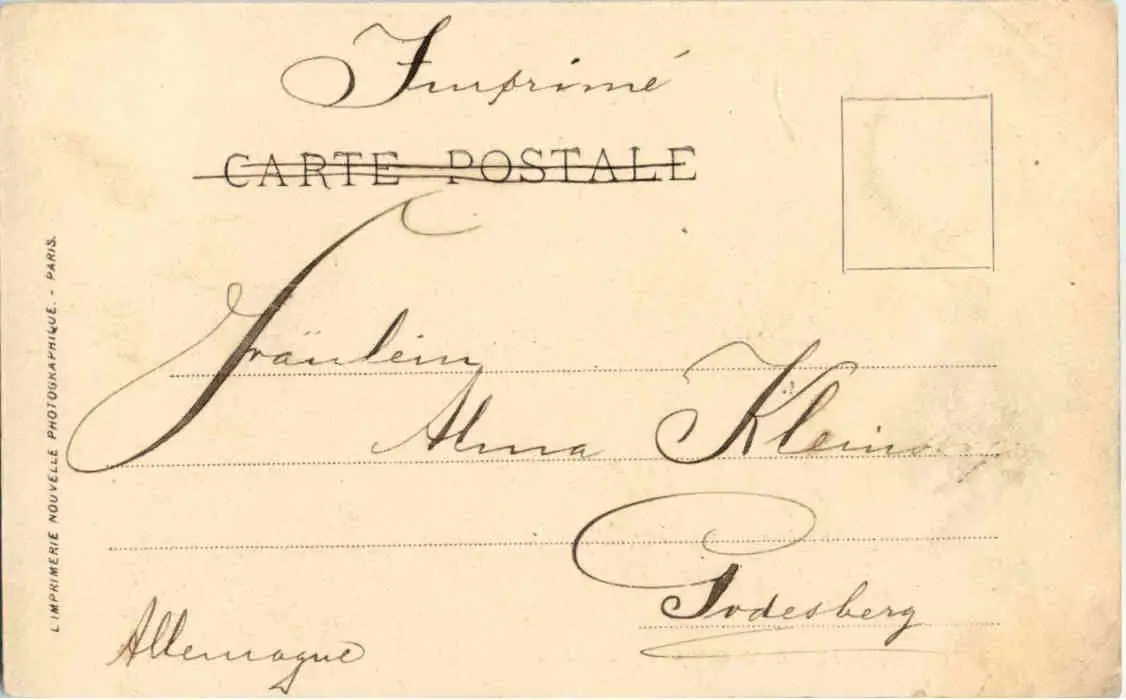 Imprimé
CARTE POSTALE
Fräulein
Alma
Godesberg
Allemagne
L'IMPRIMERIE NOUVELLE PHOTOGRAPHIQUE. - PARIS.